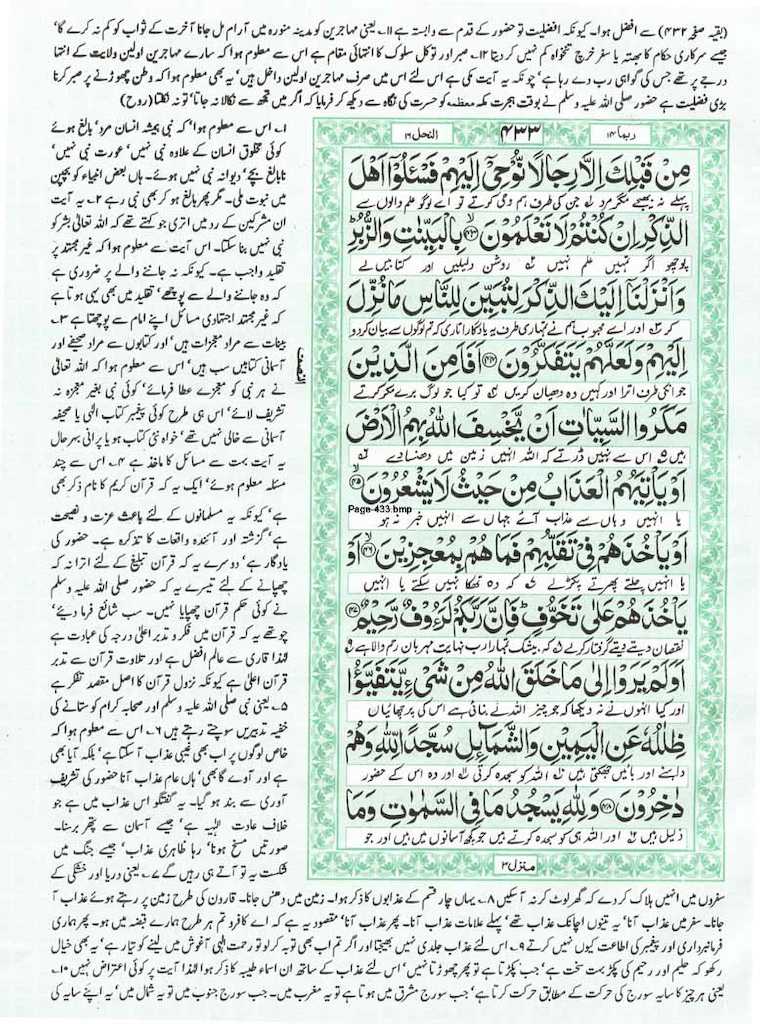 (بقیہ صفحہ ۴۳۲) سے افضل ہوا۔ کیونکہ افضلیت تو حضور کے قدم سے وابستہ ہے ۱۱۔ یعنی مہاجرین کو مدینہ منورہ میں آرام مل جانا آخرت کے ثواب کو کم نہ کرے گا'
جیسے سرکاری حکام کا بھتہ یا سفر خرچ تنخواہ کم نہیں کر دیتا ۱۲۔ صبر اور توکل سلوک کا انتہائی مقام ہے اس سے معلوم ہوا کہ سارے مہاجرین اولین ولایت کے انتہا
درجے پر تھے جس کی گواہی رب دے رہا ہے' چونکہ یہ آیت مکی ہے اس لئے اس میں صرف مہاجرین اولین داخل ہیں' یہ بھی معلوم ہوا کہ وطن چھوڑنے پر صبر کرنا
بڑی فضیلت ہے حضور صلی اللہ علیہ وسلم نے بوقت ہجرت مکہ معظمہ کو حسرت کی نگاہ سے دیکھ کر فرمایا کہ اگر میں تجھ سے نکالا نہ جاتا' تو نہ نکلتا (روح)
ربما ۱۴
۴۳۳
النحل ۱۶
مِنْ قَبْلِكَ اِلَّا رِجَالًا نُّوْحِیْۤ اِلَیْهِمْ فَسْـَٔلُوْۤا اَهْلَ
پہلے نہ بھیجے مگر مرد لہ جن کی طرف ہم وحی کرتے تو اے لوگو علم والوں سے
الذِّكْرِ اِنْ كُنْتُمْ لَا تَعْلَمُوْنَ ﴿۴۳﴾ بِالْبَیِّنٰتِ وَ الزُّبُرِ
پوچھو اگر تمہیں علم نہیں روشن دلیلیں اور کتابیں لے
وَ اَنْزَلْنَاۤ اِلَیْكَ الذِّكْرَ لِتُبَیِّنَ لِلنَّاسِ مَا نُزِّلَ
کر اور اے محبوب ہم نے تمہاری طرف یہ یادگار اتاری کہ تم لوگوں سے بیان کر دو
اِلَیْهِمْ وَ لَعَلَّهُمْ یَتَفَكَّرُوْنَ ﴿۴۴﴾ اَفَاَمِنَ الَّذِیْنَ
جو انکی طرف اترا اور کہیں وہ دھیان کریں تو کیا جو لوگ برے مکر کرتے
مَكَرُوا السَّیِّاٰتِ اَنْ یَّخْسِفَ اللّٰهُ بِهِمُ الْاَرْضَ
ہیں اس سے نہیں ڈرتے کہ اللہ انہیں زمین میں دھنسا دے
اَوْ یَاْتِیَهُمُ الْعَذَابُ مِنْ حَیْثُ لَا یَشْعُرُوْنَ ﴿۴۵﴾
Page-433.bmp
یا انہیں وہاں سے عذاب آئے جہاں سے انہیں خبر نہ ہو
اَوْ یَاْخُذَهُمْ فِیْ تَقَلُّبِهِمْ فَمَا هُمْ بِمُعْجِزِیْنَ ﴿۴۶﴾ اَوْ
یا انہیں چلتے پھرتے پکڑ لے کہ وہ تھکا نہیں سکتے یا انہیں
یَاْخُذَهُمْ عَلٰی تَخَوُّفٍ فَاِنَّ رَبَّكُمْ لَرَءُوْفٌ رَّحِیْمٌ ﴿۴۷﴾
نقصان دیتے دیتے گرفتار کر لے کہ بیشک تمہارا رب نہایت مہربان رحم والا ہے
اَوَ لَمْ یَرَوْا اِلٰی مَا خَلَقَ اللّٰهُ مِنْ شَیْءٍ یَّتَفَیَّؤُا
اور کیا انہوں نے نہ دیکھا کہ جو چیز اللہ نے بنائی ہے اس کی پرچھائیاں
ظِلٰلُهٗ عَنِ الْیَمِیْنِ وَ الشَّمَآئِلِ سُجَّدًا لِّلّٰهِ وَ هُمْ
داہنے اور بائیں جھکتی ہیں اللہ کو سجدہ کرتی اور وہ اس کے حضور
دٰخِرُوْنَ ﴿۴۸﴾ وَ لِلّٰهِ یَسْجُدُ مَا فِی السَّمٰوٰتِ وَ مَا
ذلیل ہیں اور اللہ ہی کو سجدہ کرتے ہیں جو کچھ آسمانوں میں ہیں اور جو
منزل ۳
النصف
۱۔ اس سے معلوم ہوا' کہ نبی ہمیشہ انسان مرد' بالغ ہوئے
کوئی مخلوق انسان کے علاوہ نبی نہیں' عورت نبی نہیں'
نابالغ بچے' دیوانہ نبی نہیں ہوئے۔ ہاں بعض انبیاء کو بچپن
میں نبوت ملی۔ مگر پھر بالغ ہو کر بھی نبی رہے ۲۔ یہ آیت
ان مشرکین کے رد میں اتری جو کہتے تھے کہ اللہ تعالیٰ بشر کو
نبی نہیں بنا سکتا۔ اس آیت سے معلوم ہوا کہ غیر مجتہد پر
تقلید واجب ہے۔ کیونکہ نہ جاننے والے پر ضروری ہے
کہ وہ جاننے والے سے پوچھے' تقلید میں بھی یہی ہوتا ہے
کہ غیر مجتہد اجتہادی مسائل اپنے امام سے پوچھتا ہے ۳۔
بینات سے مراد معجزات ہیں' اور کتابوں سے مراد صحیفے اور
آسمانی کتابیں سب ہیں' اس سے معلوم ہوا کہ اللہ تعالیٰ
نے ہر نبی کو معجزے عطا فرمائے' کوئی نبی بغیر معجزہ نہ
تشریف لائے' اس ہی طرح کوئی پیغمبر کتاب الٰہی یا صحیفہ
آسمانی سے خالی نہیں تھے' خواہ نئی کتاب ہو یا پرانی بہرحال
یہ آیت بہت سے مسائل کا ماخذ ہے ۴۔ اس سے چند
مسئلہ معلوم ہوئے' ایک یہ کہ قرآن کریم کا نام ذکر بھی
ہے' کیونکہ یہ مسلمانوں کے لئے باعث عزت و نصیحت
ہے' گزشتہ اور آئندہ واقعات کا تذکرہ ہے۔ حضور کی
یادگار ہے' دوسرے یہ کہ قرآن تبلیغ کے لئے اترا نہ کہ
چھپانے کے لئے تیسرے یہ کہ حضور صلی اللہ علیہ وسلم
نے کوئی حکم قرآن چھپایا نہیں۔ سب شائع فرما دیئے'
چوتھے یہ کہ قرآن میں فکر و تدبر اعلیٰ درجہ کی عبادت ہے
لہٰذا قاری سے عالم افضل ہے اور تلاوت قرآن سے تدبر
قرآن اعلیٰ ہے کیونکہ نزول قرآن کا اصل مقصد تفکر ہے
۵۔ یعنی نبی صلی اللہ علیہ وسلم اور صحابہ کرام کو ستانے کی
خفیہ تدبیریں سوچتے رہتے ہیں ۶۔ اس سے معلوم ہوا کہ
خاص لوگوں پر اب بھی غیبی عذاب آ سکتا ہے' بلکہ آیا بھی
ہے اور آوے گا بھی' ہاں عام عذاب آنا حضور کی تشریف
آوری سے بند ہو گیا۔ یہ گفتگو اس عذاب میں ہے جو
خلاف عادت الٰہیہ ہے' جیسے آسمان سے پتھر برسنا۔
صورتیں مسخ ہونا' رہا ظاہری عذاب' جیسے جنگ میں
شکست یہ تو آتے ہی رہیں گے ۷۔ یعنی دریا اور خشکی کے
سفروں میں انہیں ہلاک کر دے کہ گھر لوٹ کر نہ آ سکیں ۸۔ یہاں چار قسم کے عذابوں کا ذکر ہوا۔ زمین میں دھنس جانا۔ قارون کی طرح زمین پر رہتے ہوئے عذاب آ
جانا۔ سفر میں عذاب آنا' یہ تینوں اچانک عذاب تھے' پہلے علامات عذاب آنا۔ پھر عذاب آنا' مقصود یہ ہے کہ اے کافرو تم ہر طرح ہمارے قبضہ میں ہو۔ پھر ہماری
فرمانبرداری اور پیغمبر کی اطاعت کیوں نہیں کرتے ۹۔ اس لئے عذاب جلدی نہیں بھیجتا اور اگر تم اب بھی توبہ کر لو تو رحمت الٰہی آغوش میں لینے کو تیار ہے' یہ بھی خیال
رکھو کہ حلیم اور رحیم کی پکڑ بہت سخت ہے' جب پکڑتا ہے تو پھر چھوڑتا نہیں' اس لئے عذاب کے ساتھ ان اسماء طیبہ کا ذکر ہوا لہٰذا آیت پر کوئی اعتراض نہیں ۱۰۔
یعنی ہر چیز کا سایہ سورج کی حرکت کے مطابق حرکت کرتا ہے' جب سورج مشرق میں ہوتا ہے تو یہ مغرب میں۔ جب سورج جنوب میں تو یہ شمال میں' یہ اپنے سایہ کی